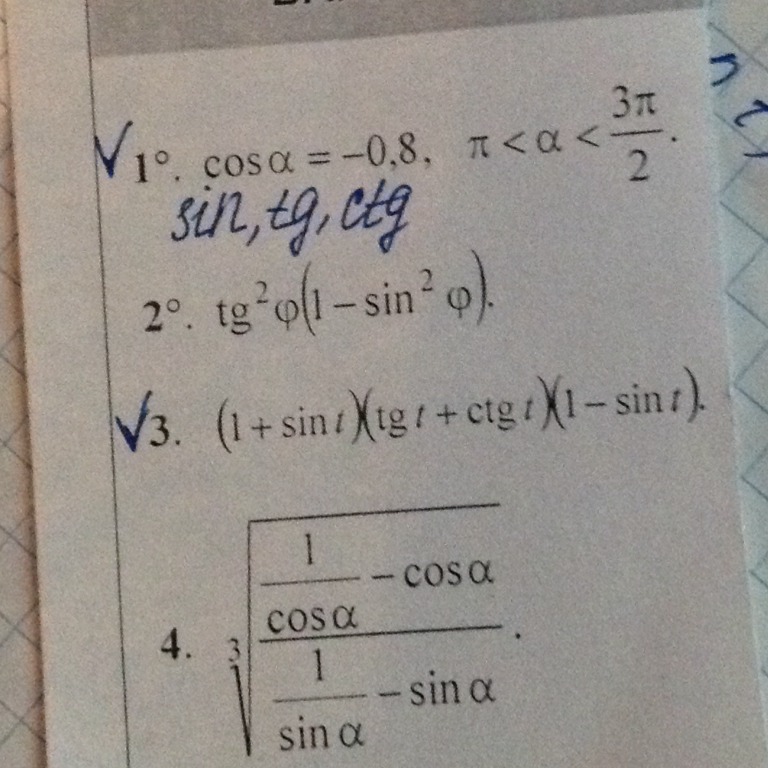 1°. cos α = −0,8, π < α < 3π/2.
sin, tg, ctg
2°. tg²φ(1 − sin² φ).
3. (1 + sin t)(tg t + ctg t)(1 − sin t).
4. ∛((1/cos α − cos α)/(1/sin α − sin α)).